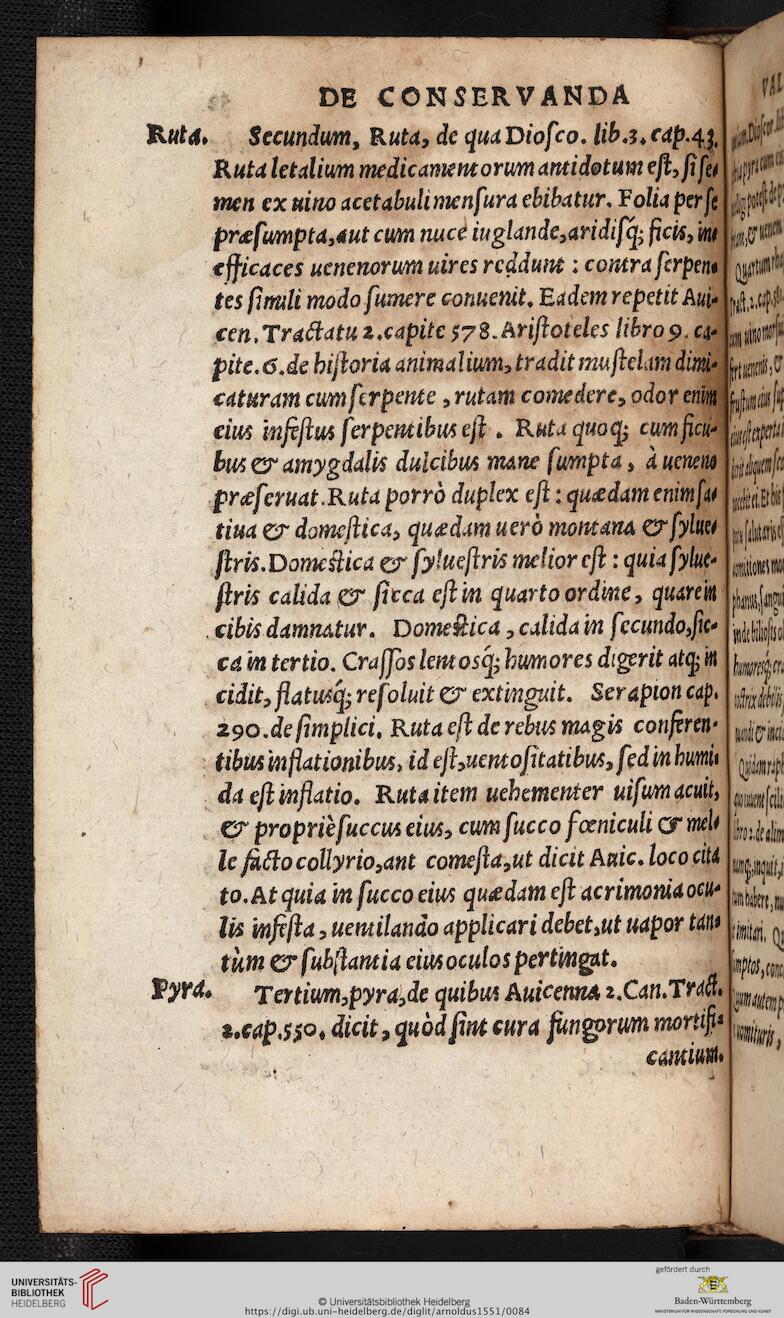 DE CONSERVANDA
Ruta. Secundum, Ruta, de qua Dioſco. lib.3. cap.43.
Ruta letalium medicamentorum antidotum eſt, ſi ſe-
men ex uino acetabuli menſura ebibatur. Folia per ſe
præſumpta, aut cum nuce iuglande, aridiſq; ficis, in-
efficaces uenenorum uires reddunt : contra ſerpen-
tes ſimili modo ſumere conuenit. Eadem repetit Aui-
cen. Tractatu 2. capite 578. Ariſtoteles libro 9. ca-
pite. 6. de hiſtoria animalium, tradit muſtelam dimi-
caturam cum ſerpente , rutam comedere, odor enim
eius infeſtus ſerpentibus eſt . Ruta quoq; cum ficu-
bus & amygdalis dulcibus mane ſumpta , à ueneno
præſeruat. Ruta porrò duplex eſt : quædam enim ſa-
tiua & domeſtica, quædam uerò montana & ſylue-
ſtris. Domeſtica & ſylueſtris melior eſt : quia ſylue-
ſtris calida & ſicca eſt in quarto ordine, quare in
cibis damnatur. Domeſtica , calida in ſecundo, ſic-
ca in tertio. Craſſos lentosq; humores digerit atq; in
cidit, flatusq; reſoluit & extinguit. Serapion cap.
290. de ſimplici. Ruta eſt de rebus magis conferen-
tibus inflationibus, id eſt, uentoſitatibus, ſed in humi-
da eſt inflatio. Ruta item uehementer uiſum acuit,
& propriè ſuccus eius, cum ſucco fœniculi & mel-
le facto collyrio, ant comeſta, ut dicit Auic. loco cita
to. At quia in ſucco eius quædam eſt acrimonia ocu-
lis infeſta , uentilando applicari debet, ut uapor tan-
tùm & ſubſtantia eius oculos pertingat.
Pyra. Tertium, pyra, de quibus Auicenna 2. Can. Tract.
2. cap. 550. dicit , quòd ſint cura fungorum mortifi-
cantium.
UNIVERSITÄTS-
BIBLIOTHEK
HEIDELBERG
© Universitätsbibliothek Heidelberg
https://digi.ub.uni-heidelberg.de/diglit/arnoldus1551/0084
gefördert durch
Baden-Württemberg
MINISTERIUM FÜR WISSENSCHAFT, FORSCHUNG UND KUNST